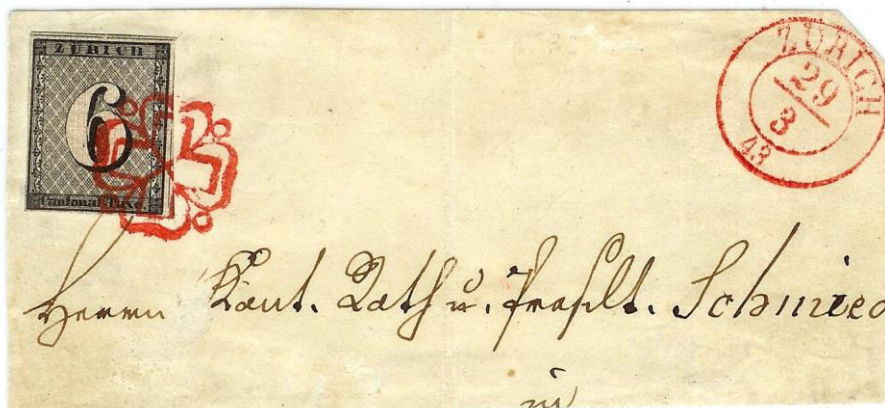 ZÜRICH
6
Cantonal-Taxe.
ZÜRICH
29
3
43
Herrn Kant. Rath u. Präsdt. Schmied
in